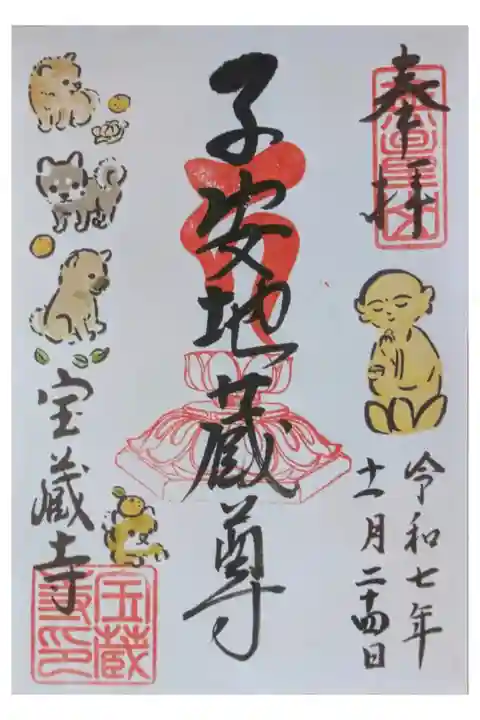 奉拝
令和七年
十一月二十四日
子安地蔵尊
宝蔵寺
宝蔵寺印